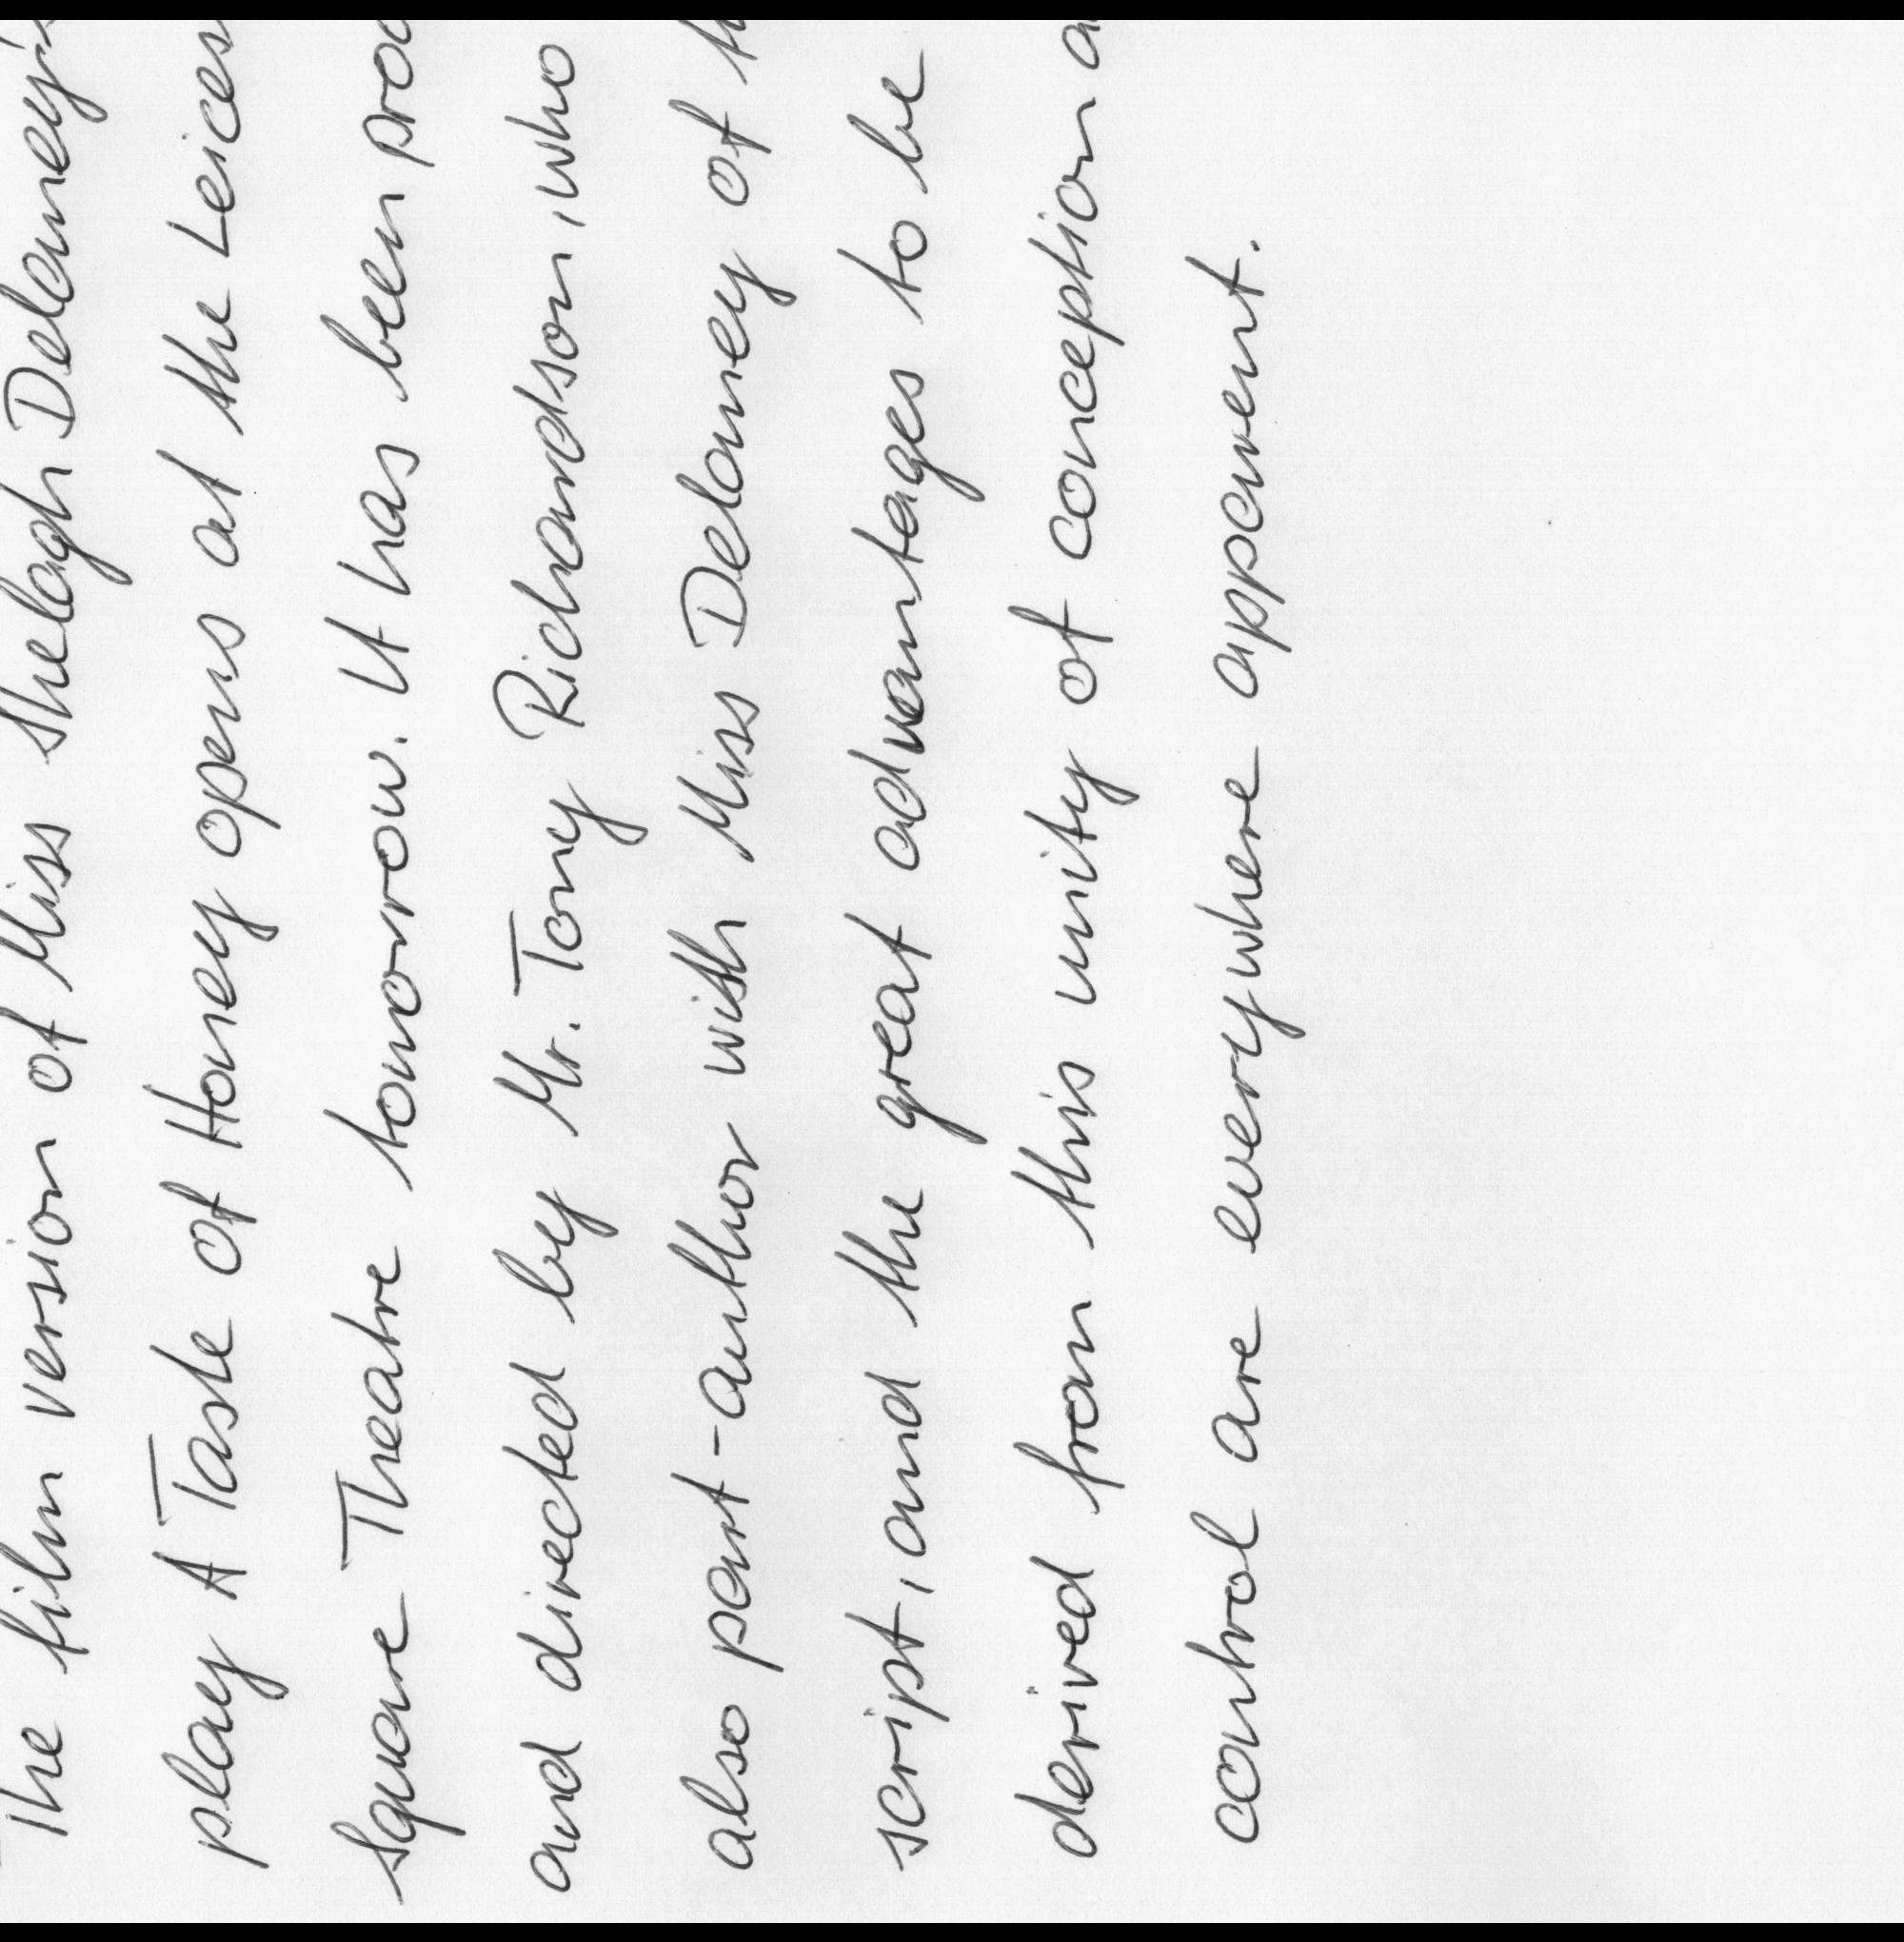 The film version of Miss Shelagh Delaney's
play A Taste of Honey opens at the Leices
Square Theatre tomorrow. It has been pro
and directed by Mr. Tony Richardson, who
also part-author with Miss Delaney of
script, and the great advantages to be
derived from this unity of conception
control are everywhere apparent.